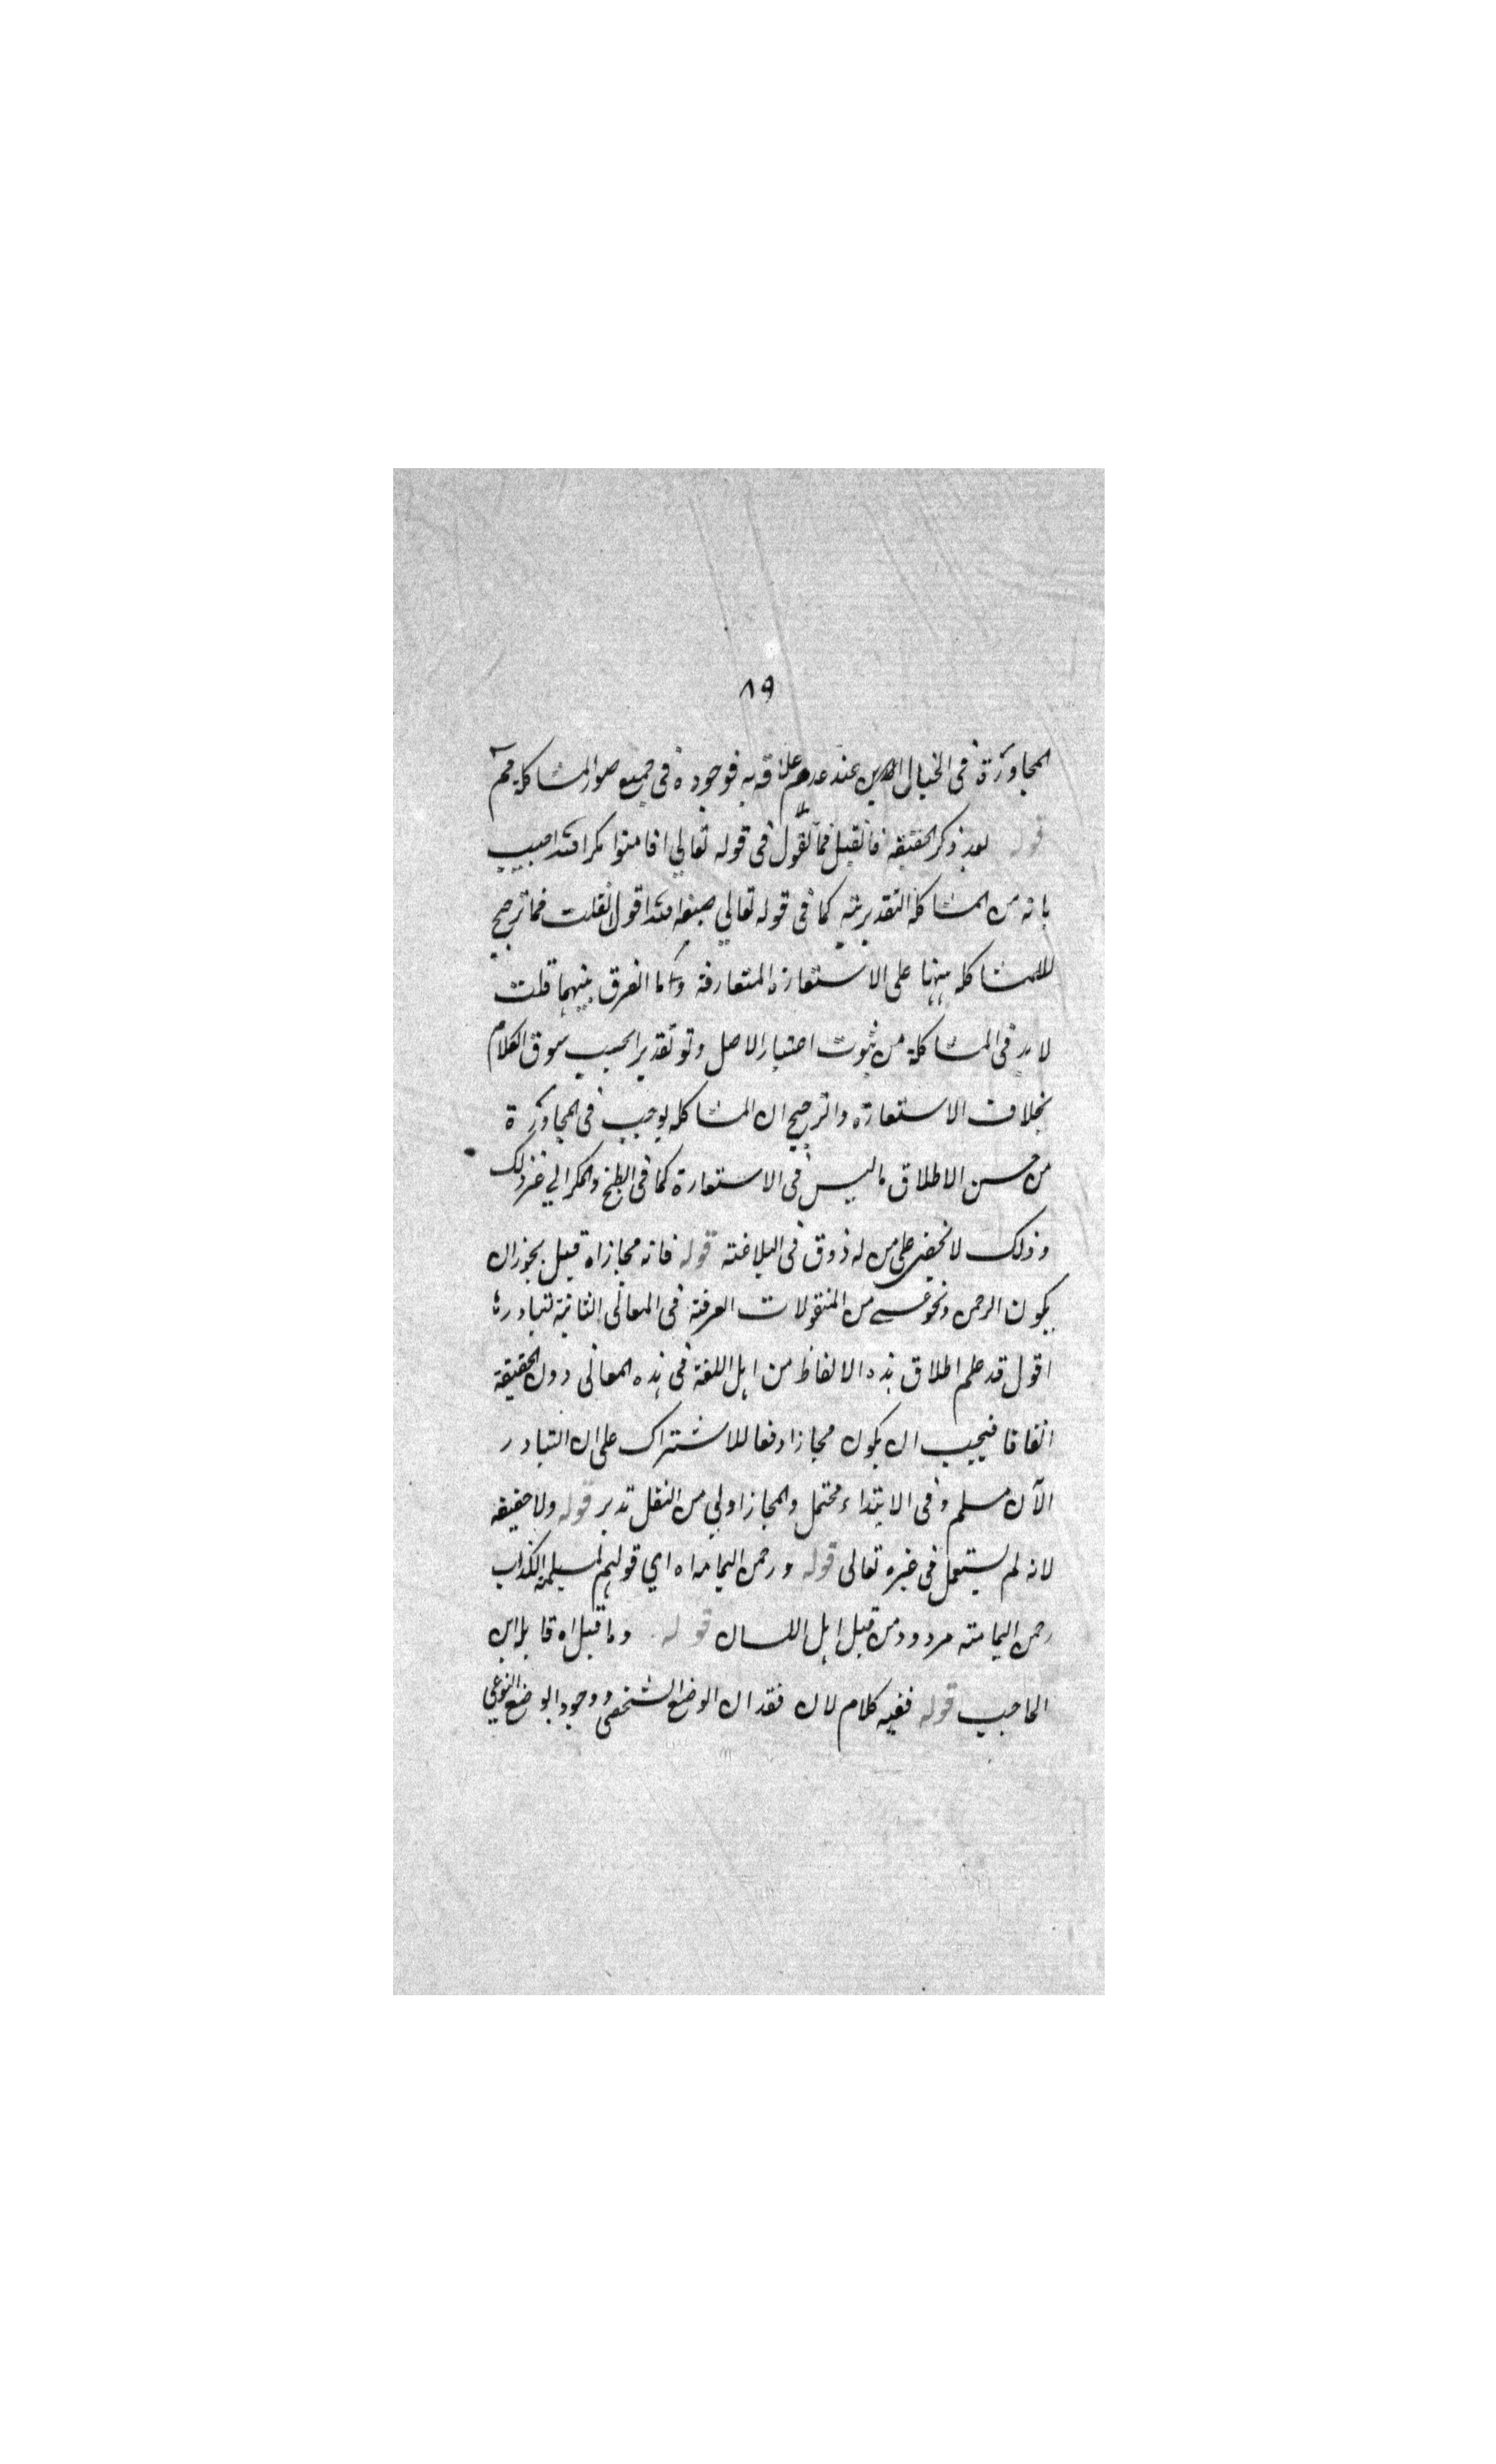 ٨٩
المجاورة فى الخيال عند عدم علاقة به فوجوده فى جميع صور المشاكلة ثمه
قوله بعد ذكر الحقيقة فان قيل فما تقول فى قوله تعالي افامنوا مكر الله اجيب
بانه من المشاكلة التقديرية كما فى قوله تعالي صبغة الله اقول ان قلت فما ترجيح
للمشاكله منهما على الاستعارة المتعارفة وما الفرق بينهما قلت
لابد فى المشاكلة من ثبوت اعتبار الاصل ولو تقديرا بحسب سوق الكلام
بخلاف الاستعارة والترجيح ان المشاكله يوجب فى المجاورة
من حسن الاطلاق ما ليس فى الاستعارة كما فى الطبخ والمكر الي غير ذلك
وذلك لا يخفى على من له ذوق فى البلاغة قوله فانه مجاز اه قيل يجوز ان
يكون الرحمن ونحو عسى من المنقولات العرفية فى المعانى الثانية لتبادرها
اقول قد علم اطلاق هذه الالفاظ من اهل اللغة فى هذه المعانى دون الحقيقة
اتفاقا فيجب ان يكون مجازا دفعا للاشتراك على ان التبادر
الآن مسلم وفى الابتداء محتمل والمجاز اولي من النقل تدبر قوله ولا حقيقة
لانه لم يستعمل فى غيره تعالى قوله ورحمن اليمامة اه اي قولهم لمسيلمة الكذاب
رحمن اليمامة مردود من قبل اهل اللسان قوله وما قيل اه قائله ابن
الحاجب قوله ففيه كلام لان فقدان الوضع الشخصى ووجود الوضع النوعي